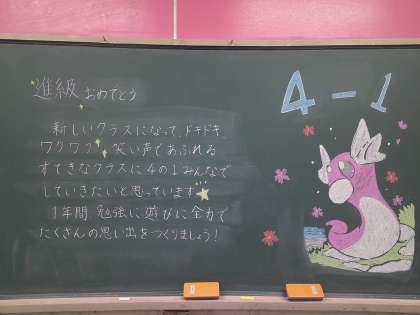 進級おめでとう
4-1
新しいクラスになって、ドキドキ、
ワクワク 笑い声であふれる
すてきなクラスに4の1みんなで
していきたいと思っています
1年間 勉強に遊びに全力で
たくさんの思い出をつくりましょう!